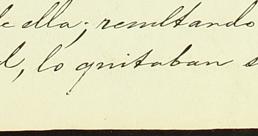 de ella; resultando
l, lo quitaban s